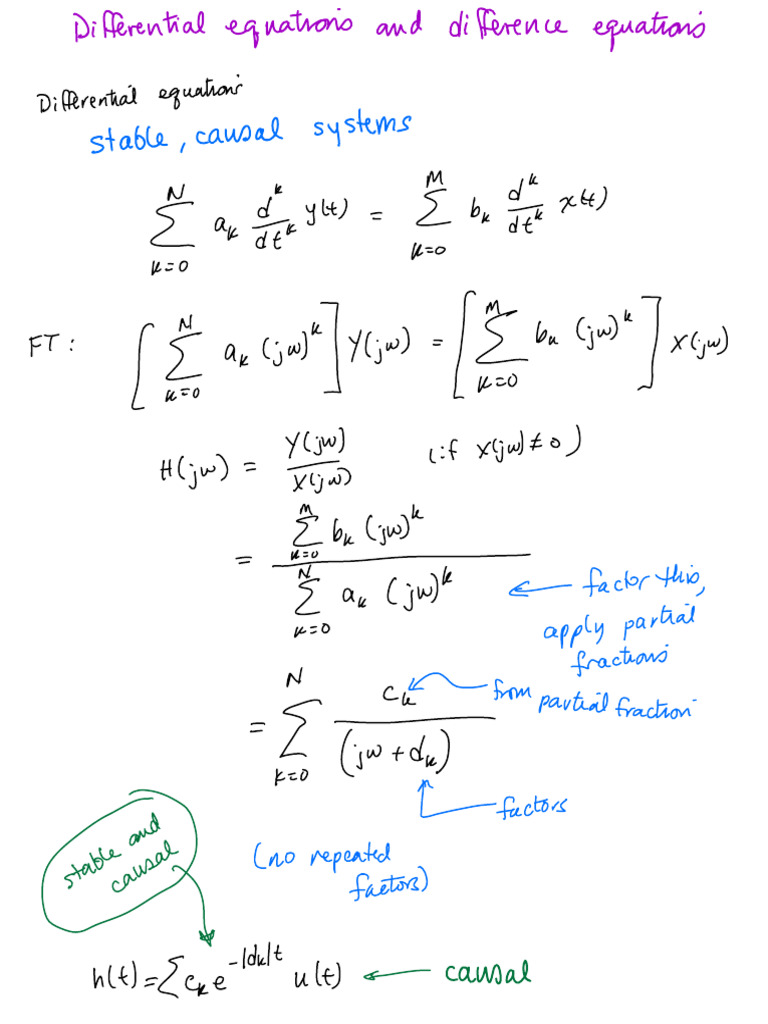 Differential equations and difference equations
Differential equations
stable, causal systems
\sum_{k=0}^{N} a_k \frac{d^k}{dt^k} y(t) = \sum_{k=0}^{M} b_k \frac{d^k}{dt^k} x(t)
FT: \left[ \sum_{k=0}^{N} a_k (jw)^k \right] Y(jw) = \left[ \sum_{k=0}^{M} b_k (jw)^k \right] X(jw)
H(jw) = \frac{Y(jw)}{X(jw)} (if X(jw) ≠ 0)
= \frac{\sum_{k=0}^{M} b_k (jw)^k}{\sum_{k=0}^{N} a_k (jw)^k} ← factor this,
apply partial
fractions
= \sum_{k=0}^{N} \frac{c_k}{(jw + d_k)} from partial fraction
factors
(no repeated
factors)
stable and
causal
h(t) = \sum c_k e^{-|d_k|t} u(t) ← causal